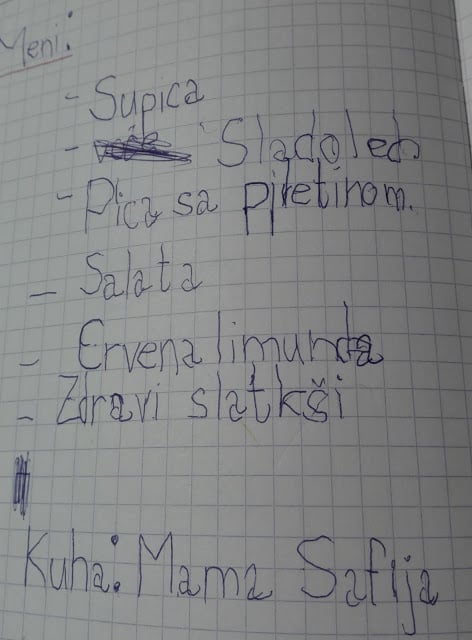 Meni:
- Supica
- Sladoled
- Pica sa pjletinom.
- Salata
- Ervena limunda
- Zdravi slatkši
Kuha: Mama Safija